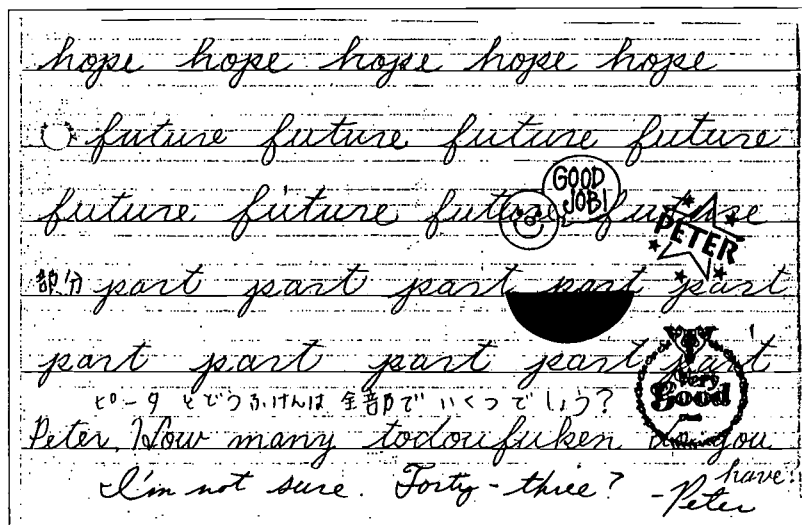 hope hope hope hope hope
future future future future
future future future future
GOOD JOB!
PETER
部分 part part part part part
part part part part part
Very Good
ピータ とどうふけんは 全部で いくつでしょう?
Peter, How many todoufuken do you have?
I'm not sure. Forty-three? -Peter